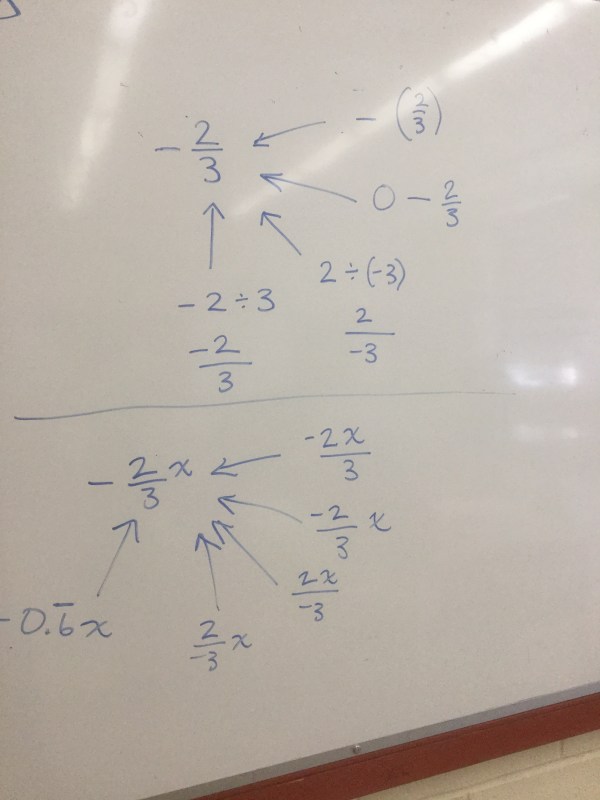 - 2/3 ← - (2/3)
0 - 2/3
-2 ÷ 3
-2/3
2 ÷ (-3)
2/-3
- 2/3 x ← -2x/3
-2/3 x
2x/-3
2/-3 x
-0.6̅x